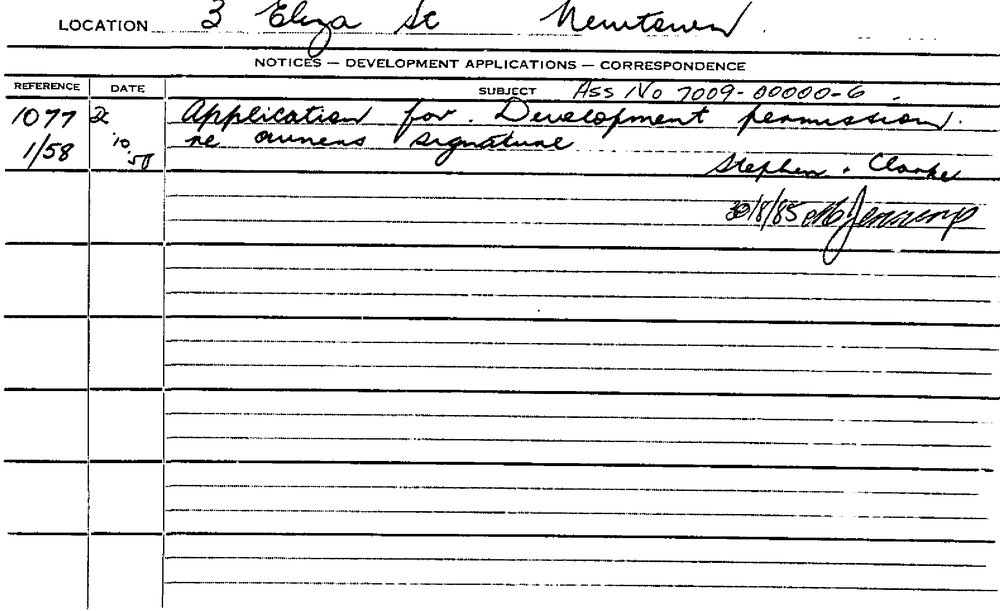 LOCATION 3 Eliza St Newtown
NOTICES — DEVELOPMENT APPLICATIONS — CORRESPONDENCE
REFERENCE DATE SUBJECT Ass No 7009-00000-6
1077 Application for Development permission.
1/58 10.58 re owners signature
Stephen Clarke
30/8/85